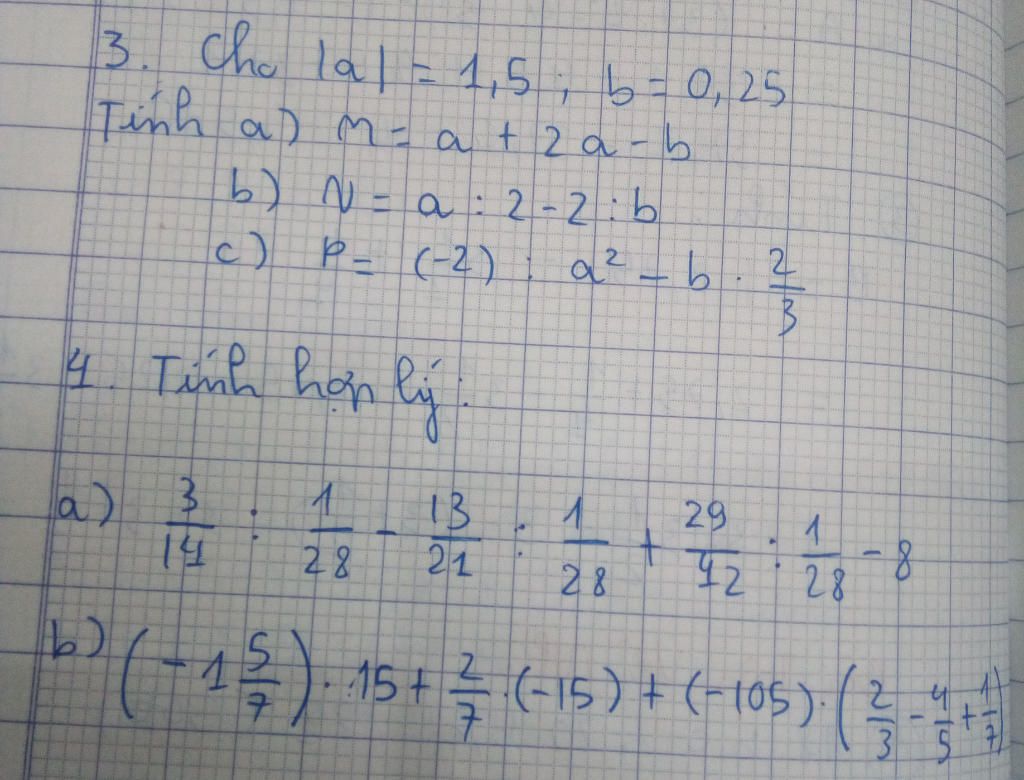 3. Cho |a| = 1,5 ; b = 0,25
Tính a) M = a + 2a - b
b) N = a : 2 - 2 : b
c) P = (-2) : a² - b . 2/3
4. Tính hợp lý :
a) 3/14 : 1/28 - 13/21 : 1/28 + 29/42 : 1/28 - 8
b) (-1 5/7) . 15 + 2/7 . (-15) + (-105) . (2/3 - 4/5 + 1/7)